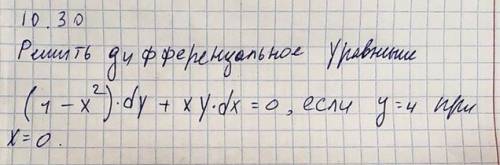 10.30
Решить дифференцальное уравнение
(1-x²)·dy + xy·dx = 0, если y=4 при
x=0.